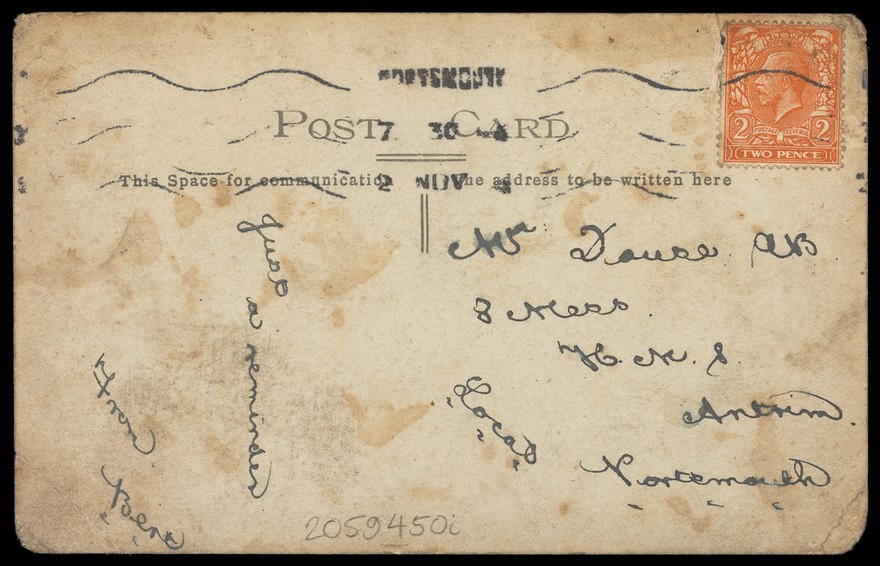 PORTSMOUTH
7 30
2 NOV
POST CARD
This Space for communication
The address to be written here
POSTAGE REVENUE
2 2
TWO PENCE
Just
a reminder
From Bern
Mr AB
8 Mess
H. M. S.
Antrim.
"Local"
Portsmouth
2059450i